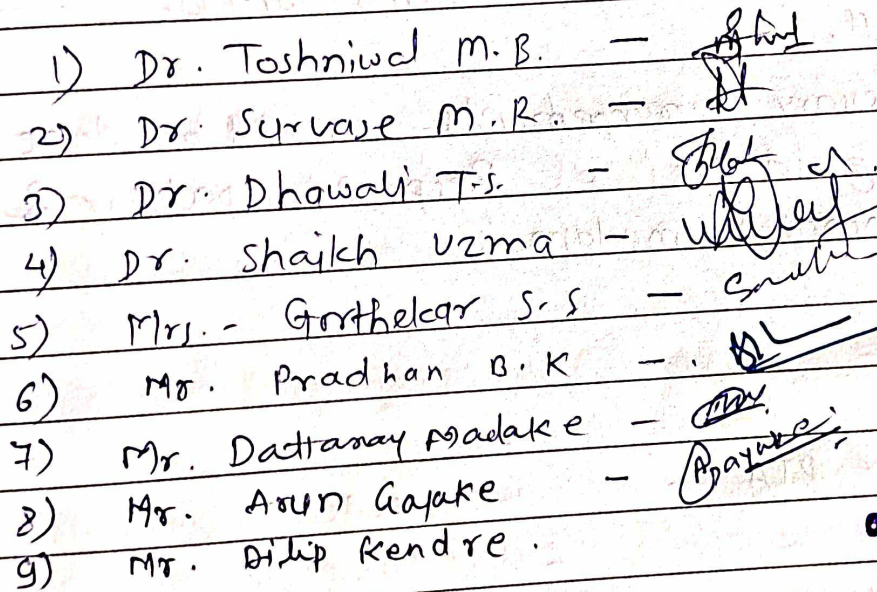 1) Dr. Toshniwal M.B. -
2) Dr. Survase M.R. -
3) Dr. Dhawali T.S. -
4) Dr. Shaikh Uzma -
5) Mrs. - Gorthekar S.S -
6) Mr. Pradhan B.K -
7) Mr. Dattaray Madake -
8) Mr. Arun Gayake -
9) Mr. Dilip Kendre.